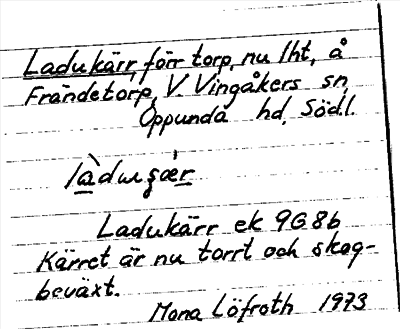 Ladukärr, förr torp, nu lht, å
Frändetorp, V. Vingåkers sn,
Oppunda hd, Södl.
Ladukärr ek 9G8b
Kärret är nu torrt och skog-
beväxt.
Mona Löfroth 1973